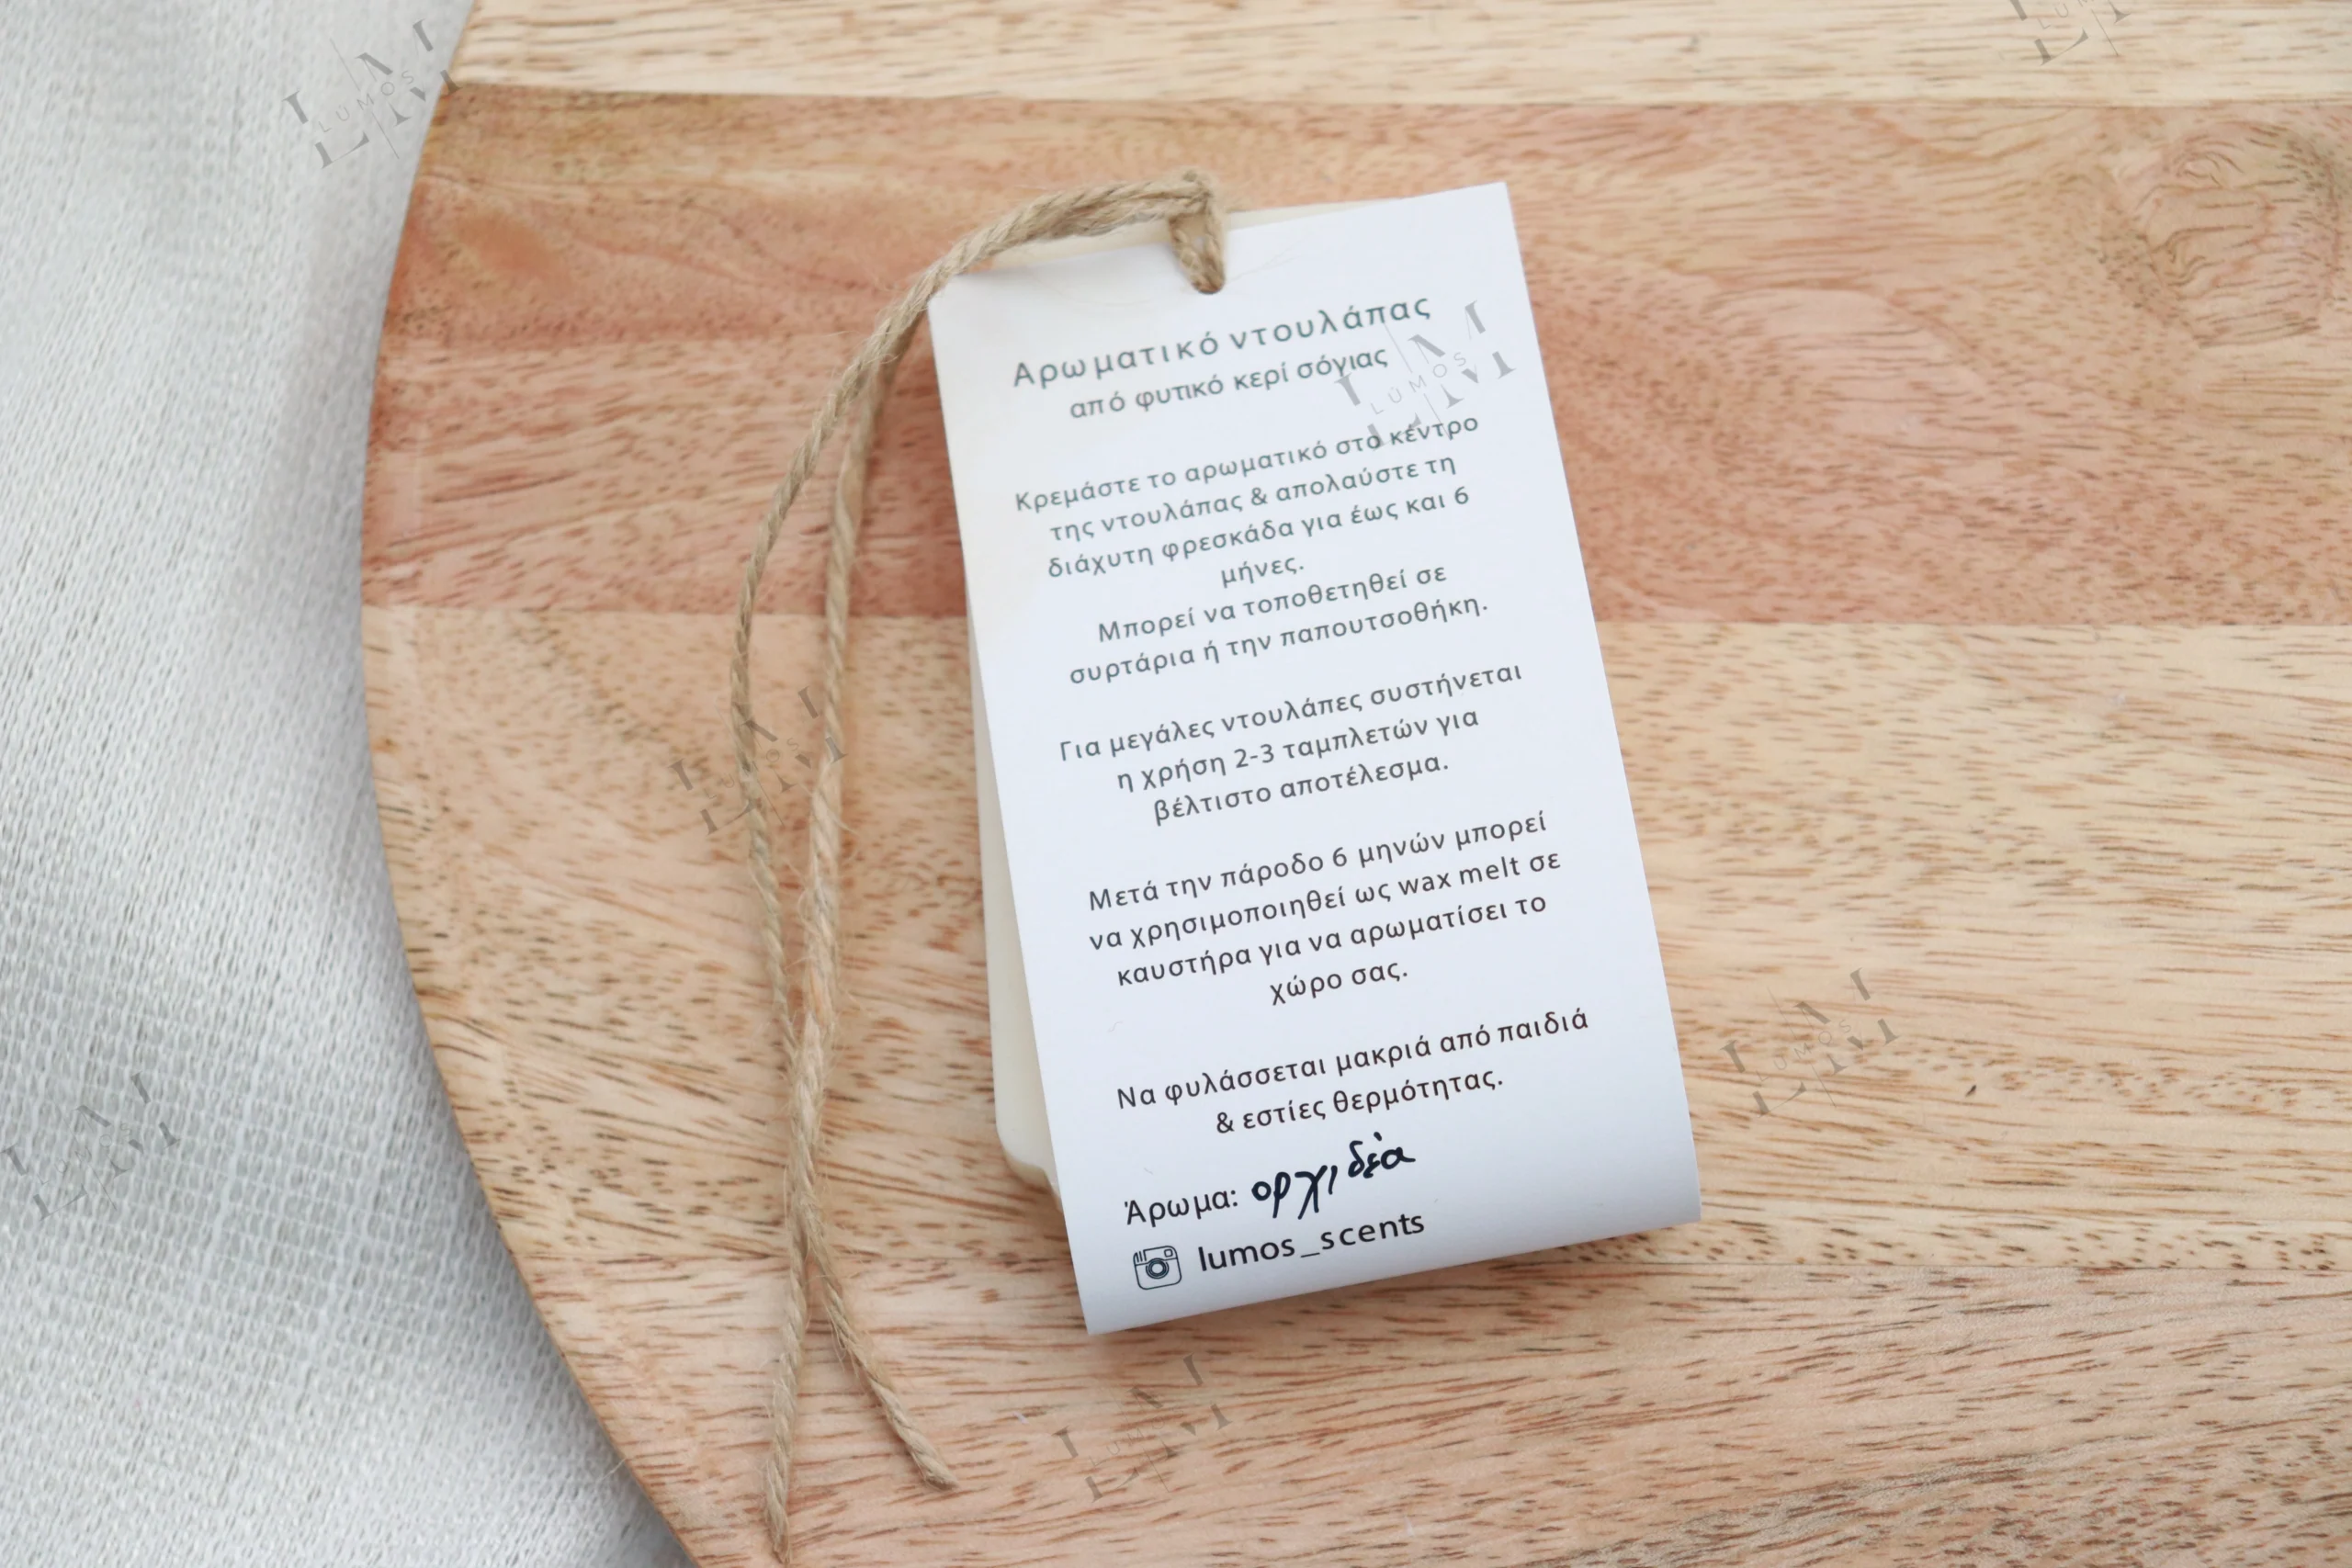 Αρωματικό ντουλάπας
από φυτικό κερί σόγιας
Κρεμάστε το αρωματικό στο κέντρο
της ντουλάπας & απολαύστε τη
διάχυτη φρεσκάδα για έως και 6
μήνες.
Μπορεί να τοποθετηθεί σε
συρτάρια ή την παπουτσοθήκη.
Για μεγάλες ντουλάπες συστήνεται
η χρήση 2-3 ταμπλετών για
βέλτιστο αποτέλεσμα.
Μετά την πάροδο 6 μηνών μπορεί
να χρησιμοποιηθεί ως wax melt σε
καυστήρα για να αρωματίσει το
χώρο σας.
Να φυλάσσεται μακριά από παιδιά
& εστίες θερμότητας.
Άρωμα: ορχιδέα
lumos_scents
LUMOS
LUMOS
LUMOS
LUMOS